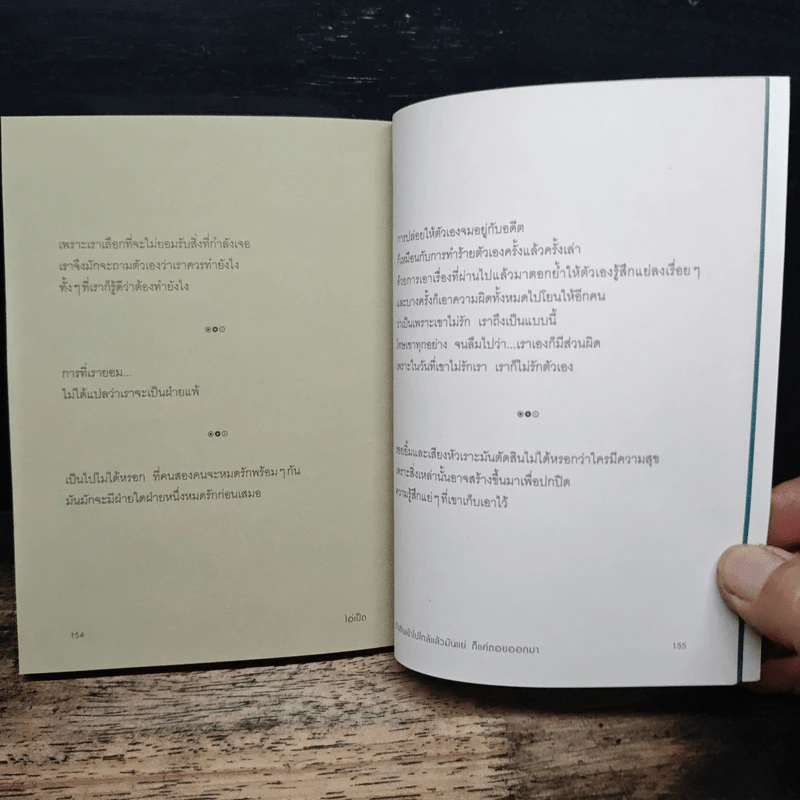 เพราะเราเลือกที่จะไม่ยอมรับสิ่งที่กำลังเจอ
เราจึงมักจะถามตัวเองว่าเราควรทำยังไง
ทั้งๆที่เราก็รู้ดีว่าต้องทำยังไง
การที่เรายอม...
ไม่ได้แปลว่าเราจะเป็นฝ่ายแพ้
เป็นไปไม่ได้หรอก ที่คนสองคนจะหมดรักพร้อมๆกัน
มันมักจะมีฝ่ายใดฝ่ายหนึ่งหมดรักก่อนเสมอ
ไอ่เป็ด
154
การปล่อยให้ตัวเองจมอยู่กับอดีต
ก็เหมือนกับการทำร้ายตัวเองครั้งแล้วครั้งเล่า
ด้วยการเอาเรื่องที่ผ่านไปแล้วมาตอกย้ำให้ตัวเองรู้สึกแย่ลงเรื่อยๆ
และบางครั้งก็เอาความผิดทั้งหมดไปโยนให้อีกคน
ว่าเป็นเพราะเขาไม่รัก เราถึงเป็นแบบนี้
โทษเขาทุกอย่าง จนลืมไปว่า...เราเองก็มีส่วนผิด
เพราะในวันที่เขาไม่รักเรา เราก็ไม่รักตัวเอง
รอยยิ้มและเสียงหัวเราะมันตัดสินไม่ได้หรอกว่าใครมีความสุข
เพราะสิ่งเหล่านั้นอาจสร้างขึ้นมาเพื่อปกปิด
ความรู้สึกแย่ๆที่เขาเก็บเอาไว้
เข้าไปใกล้แล้วมันแย่ ก็แค่ถอยออกมา
155